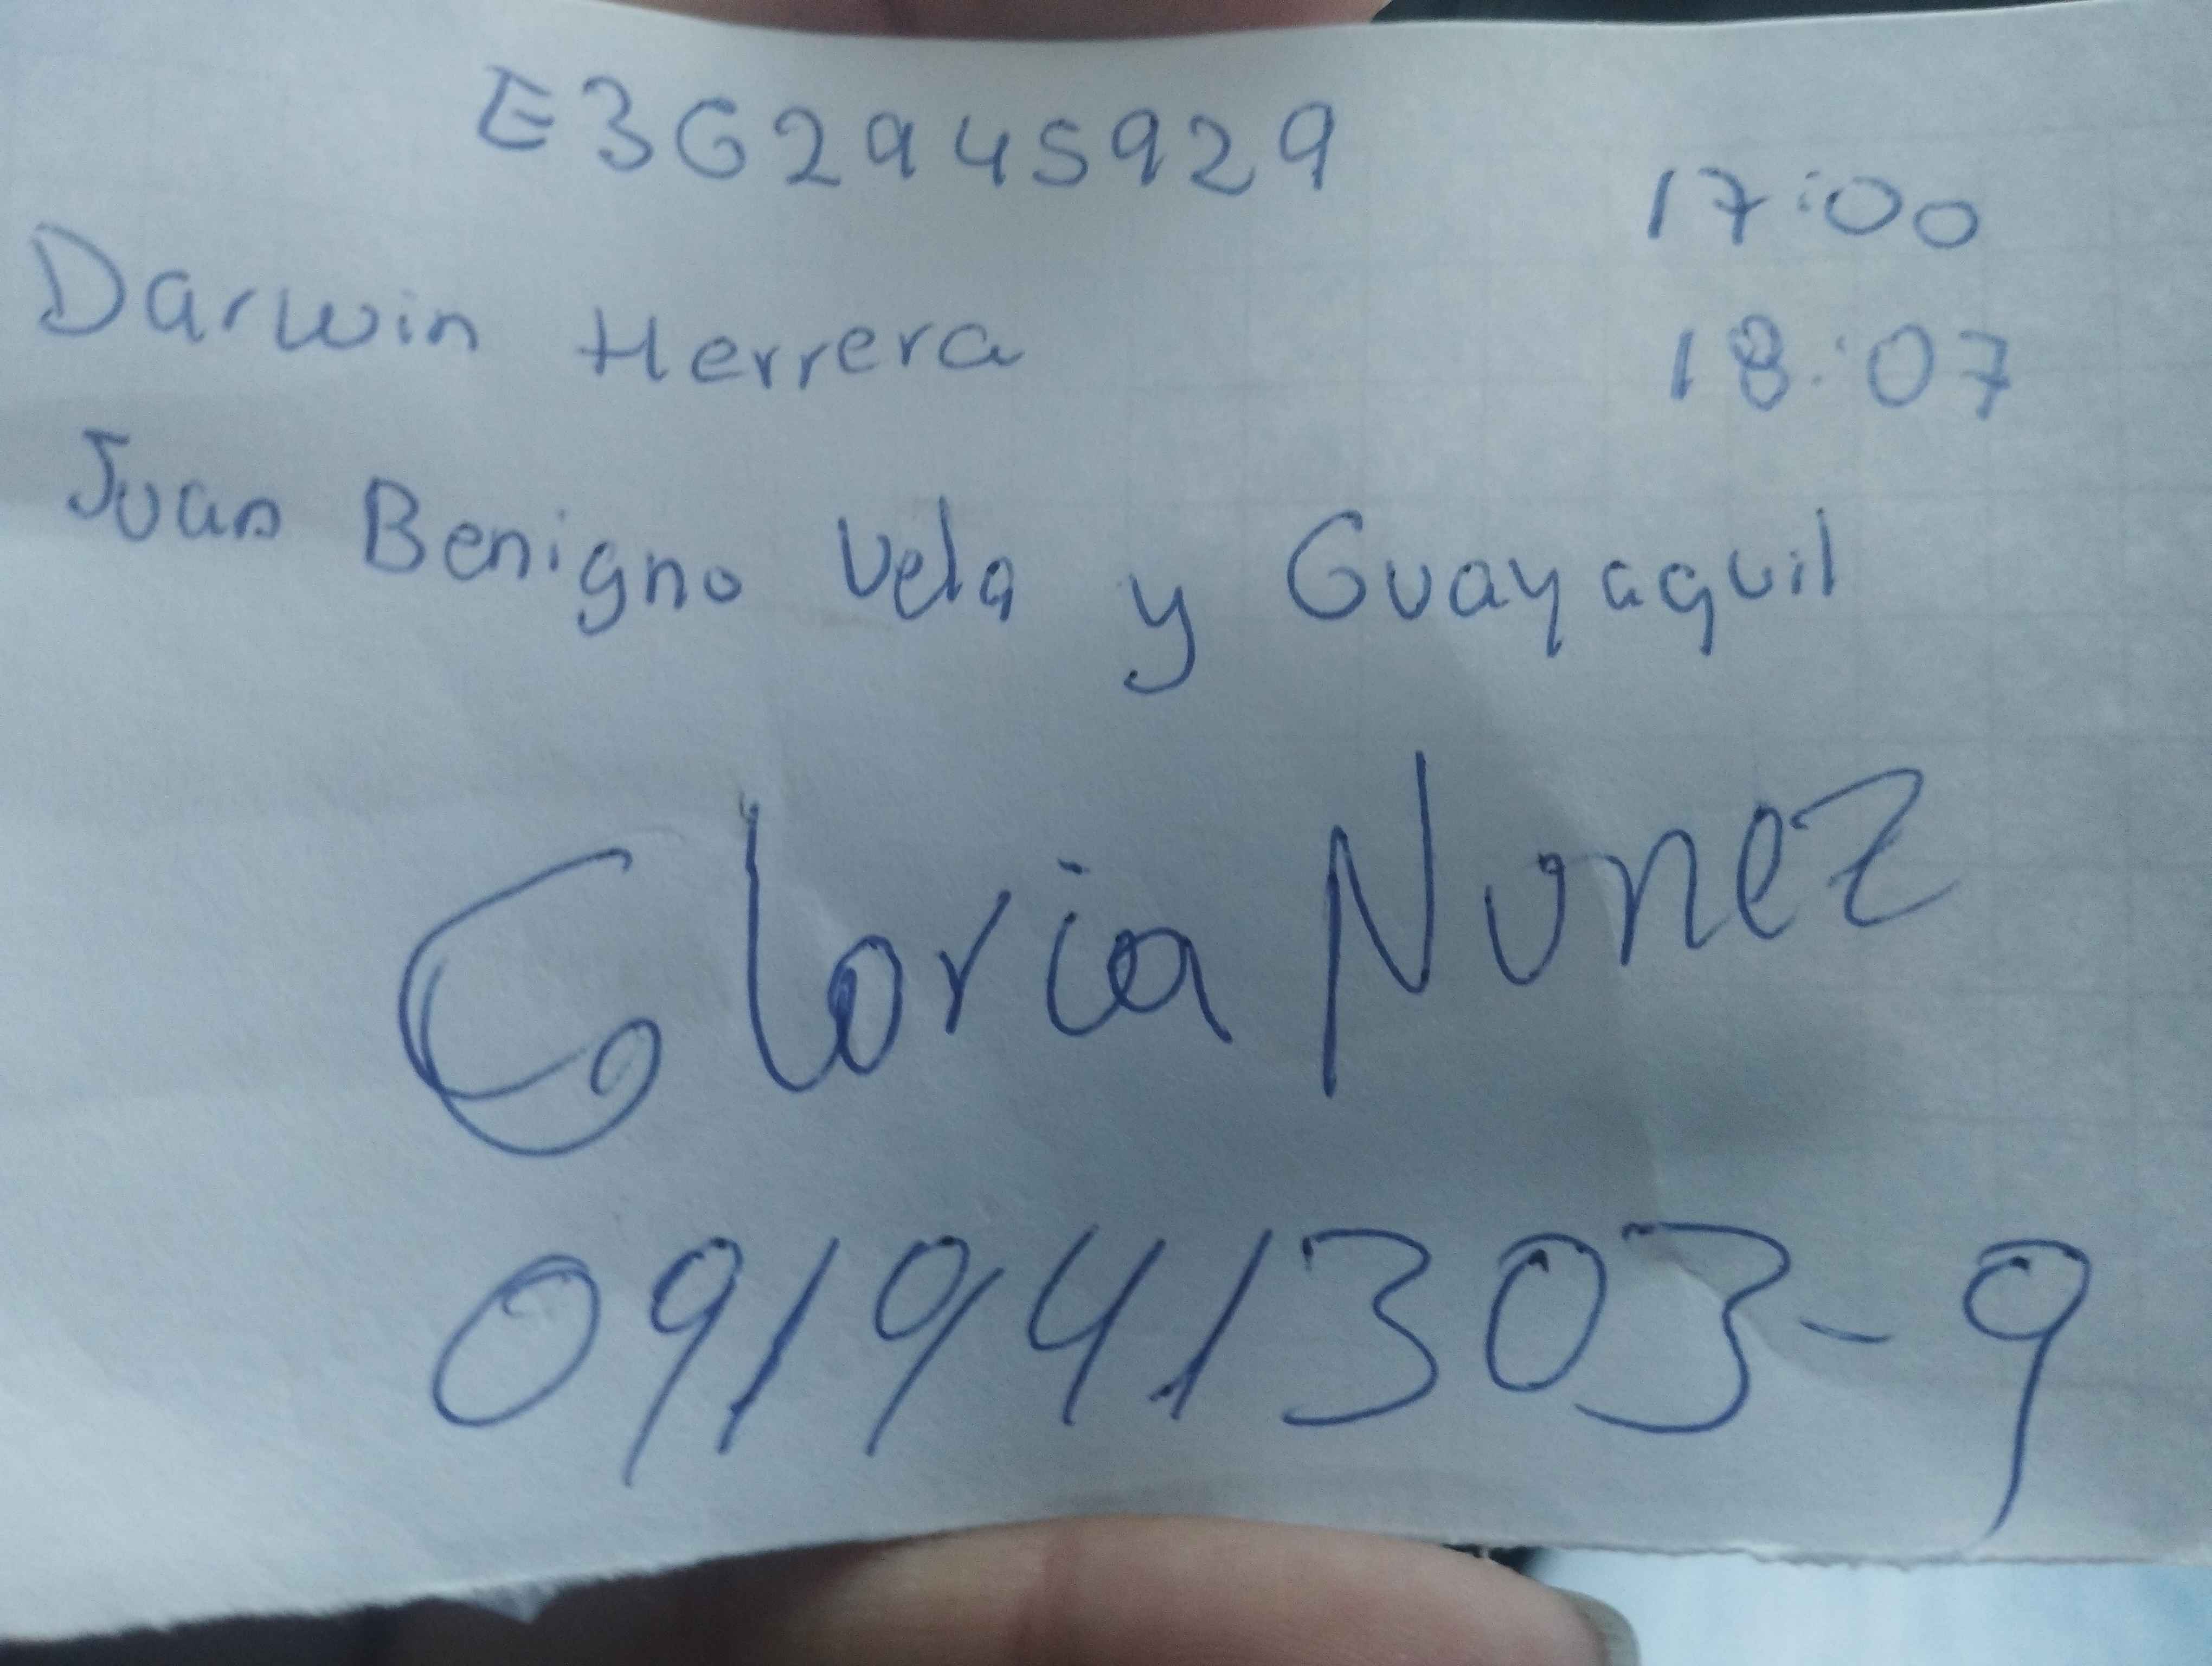 E3G2945929
17:00
Darwin Herrera
18:07
Juan Benigno Vela y Guayaquil
Gloria Nunez
091941303-9